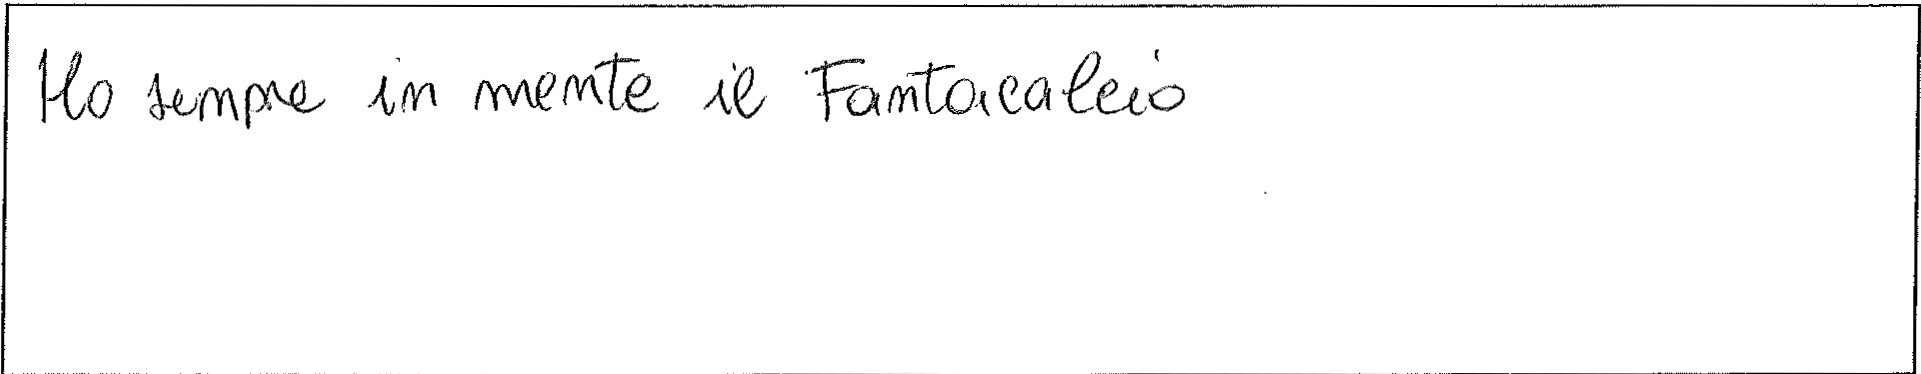 Ho sempre in mente il Fantacalcio